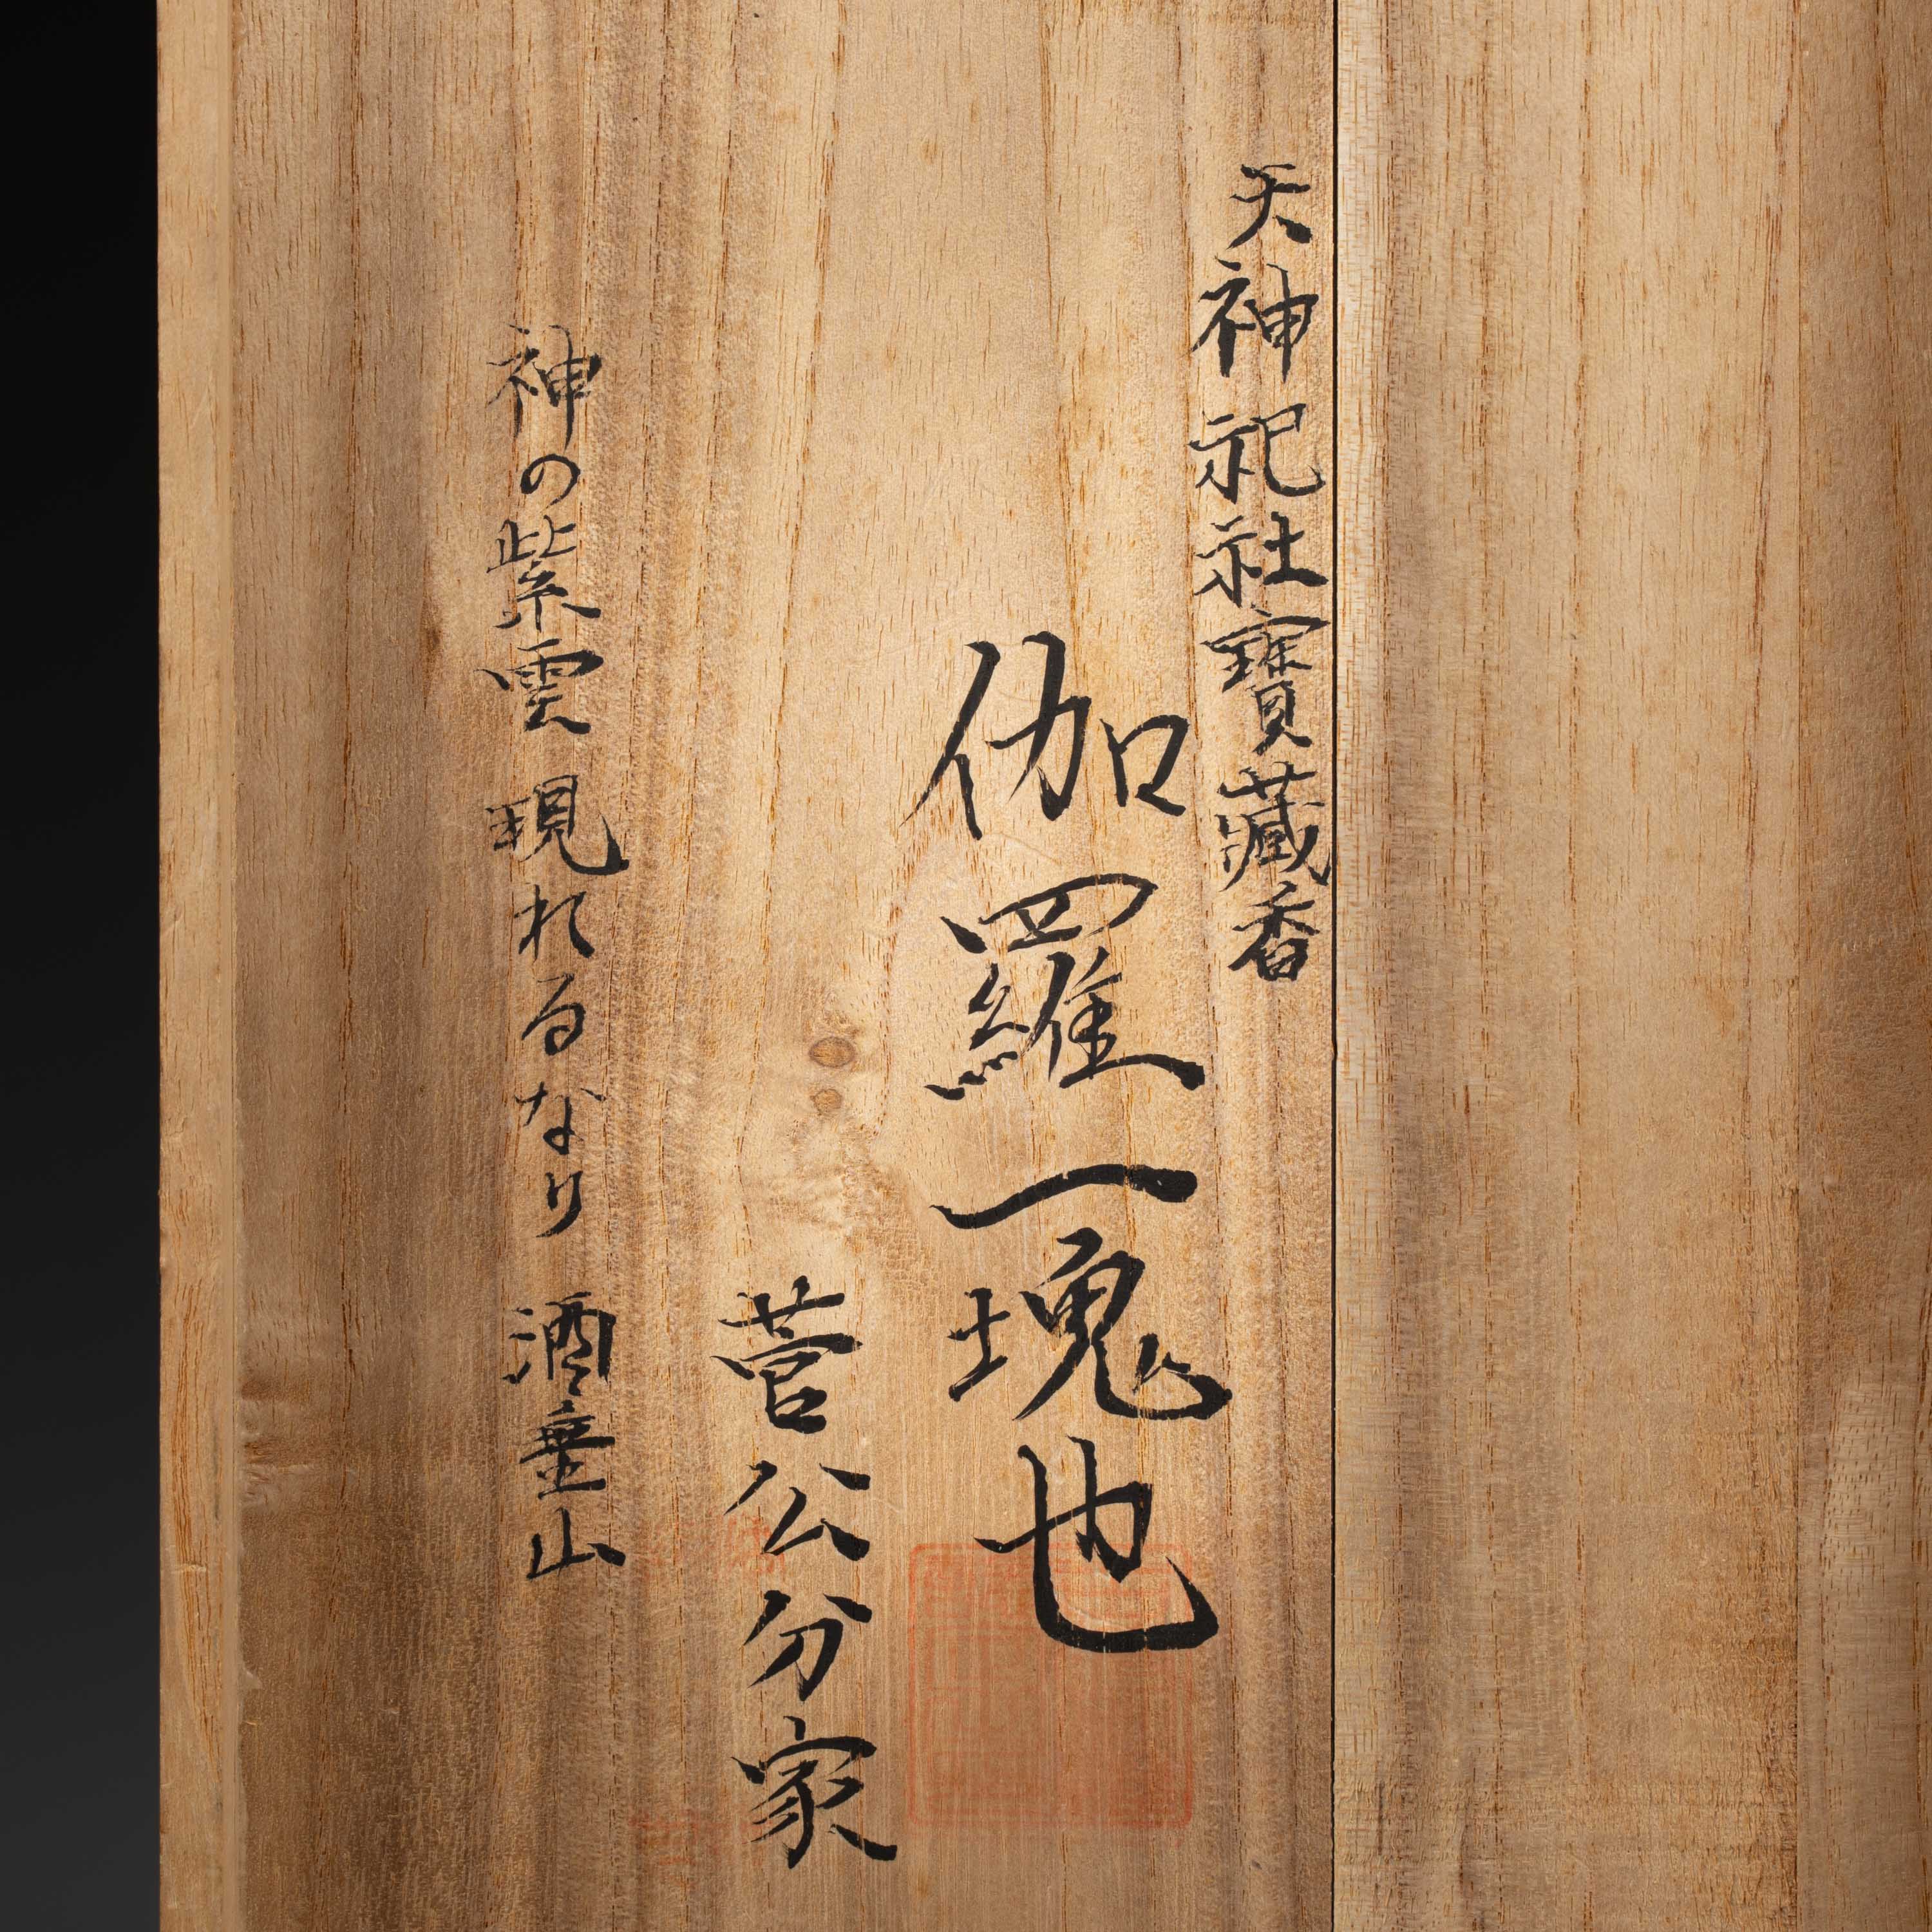 天神祀社寶藏香
伽羅一塊也
菅公分家
神の紫雲現れるなり 酒垂山